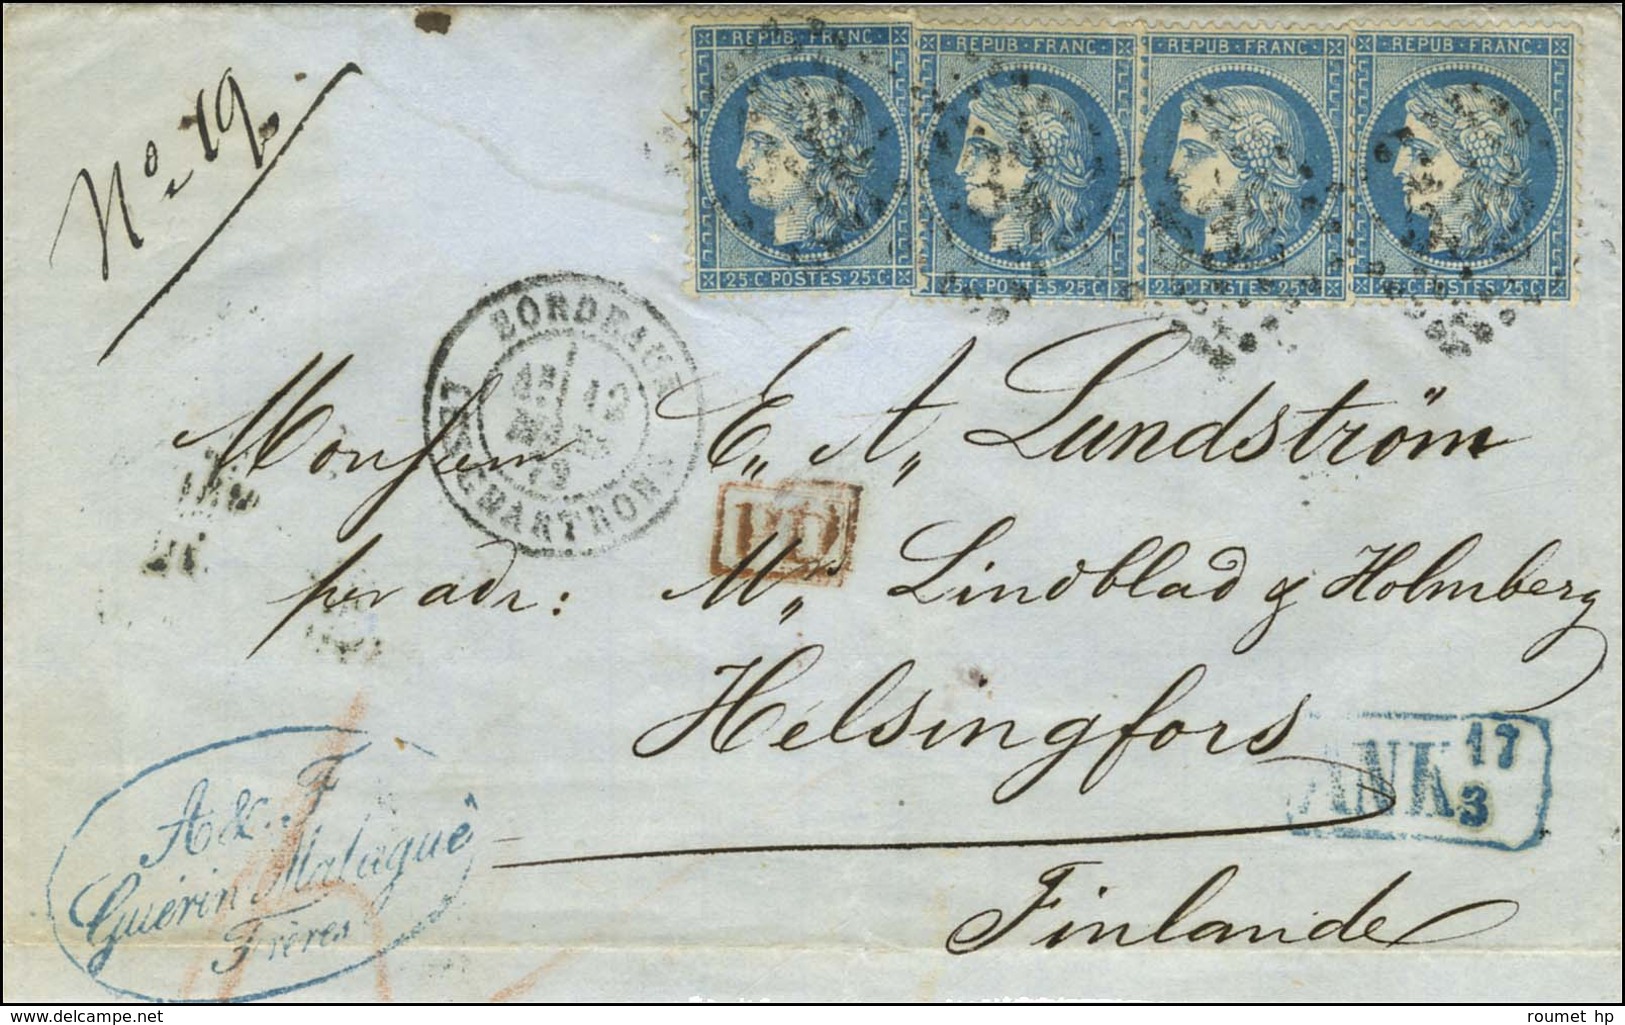 No 19
REPUB · FRANC REPUB · FRANC REPUB · FRANC REPUB · FRANC
25·C POSTES·25·C 25·C POSTES·25·C 25·C POSTES·25·C 25·C POSTES·25·C
BORDEAUX
12
MARS
LES-CHARTRONS
Monsieur E. A. Lundström
PD
per adr: Mrs Lindblad & Holmberg
Helsingfors
ANK 17/3
A & F
Guérin Malagué
Frères
Finlande
www.delcampe.net
roumet hp